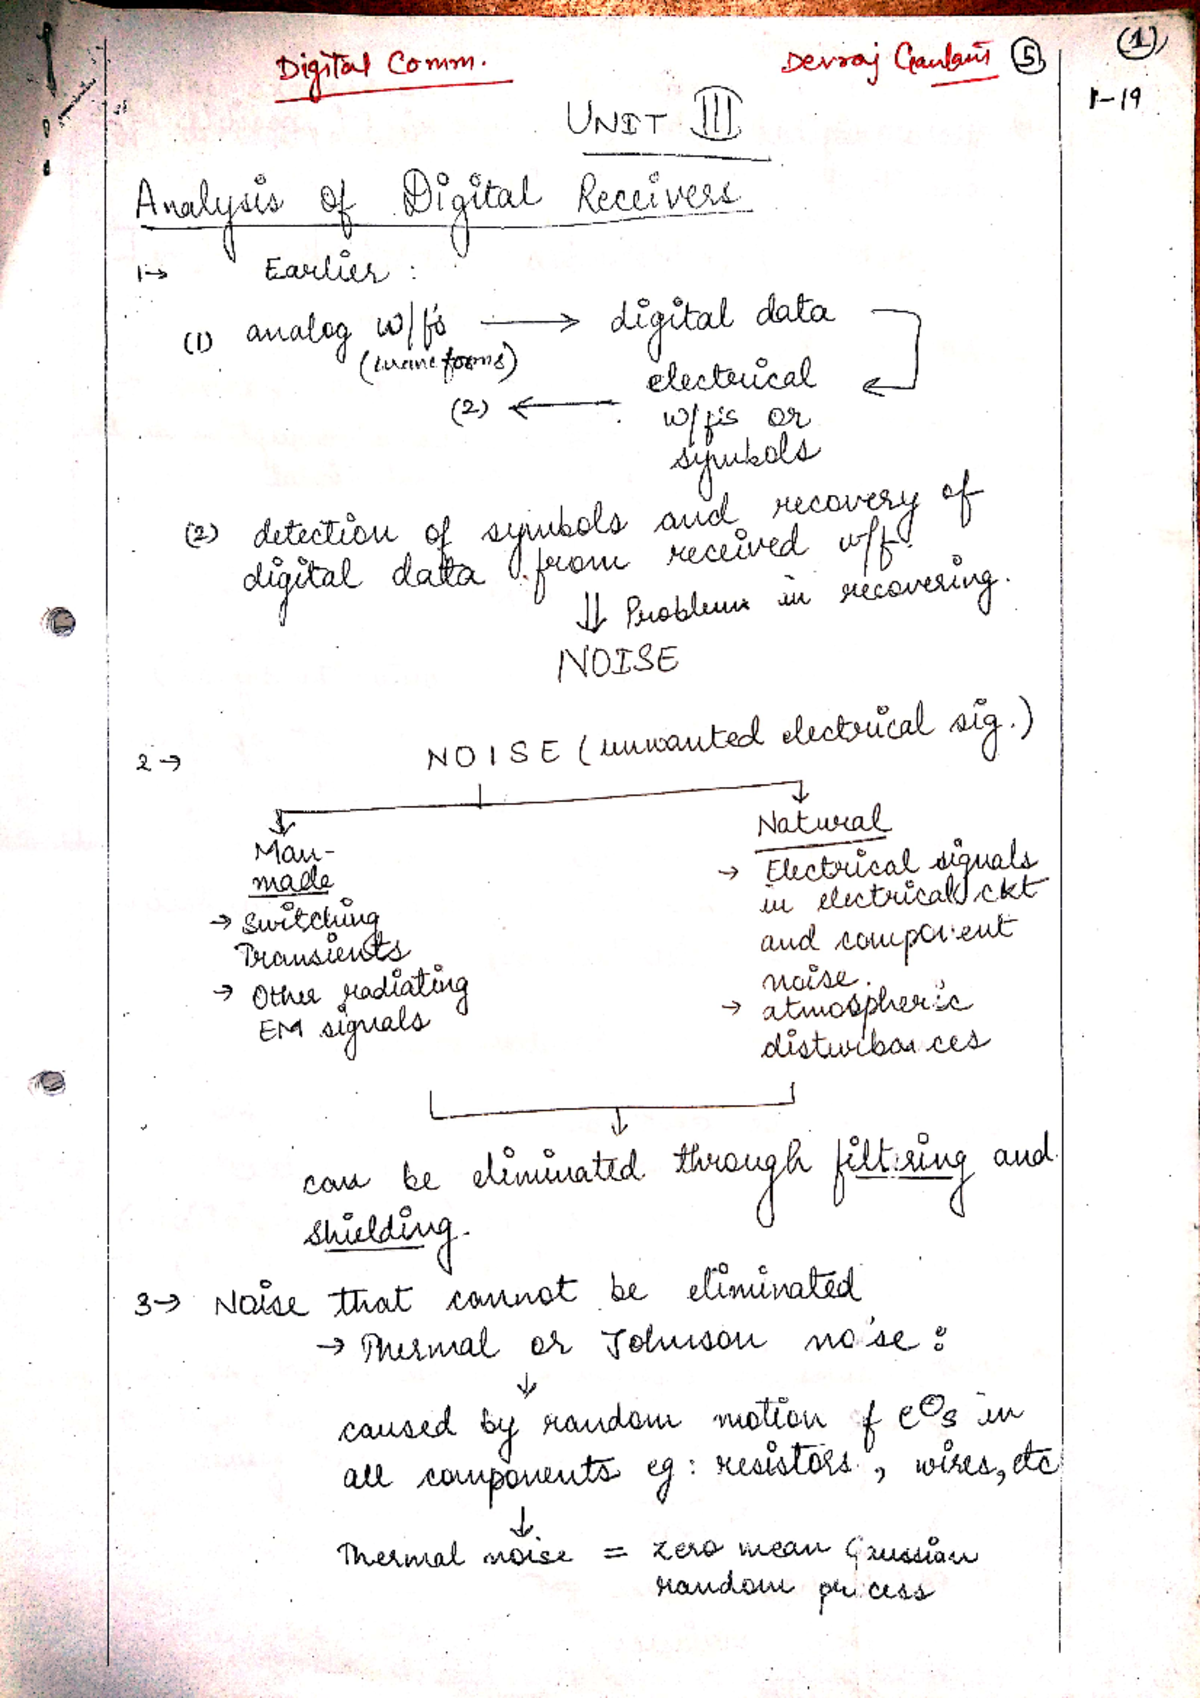 Digital Comm.
Devraj Gautam (5)
(1)
1-19
UNIT III
Analysis of Digital Receivers
1→ Earlier :
(1) analog w/f's → digital data
(wave forms)
electrical
(2) ← w/f's or
symbols
(2) detection of symbols and recovery of
digital data from received w/f.
⇓ Problem in recovering.
NOISE
2→ NOISE (unwanted electrical sig.)
Man-
made
→ Switching
Transients
→ Other radiating
EM signals
Natural
→ Electrical signals
in electrical ckt
and component
noise.
→ atmospheric
disturbances
can be eliminated through filtering and
shielding.
3→ Noise that cannot be eliminated
→ Thermal or Johnson noise :
caused by random motion of e⊖s in
all components eg : resistors, wires, etc
Thermal noise = zero mean Gaussian
random process